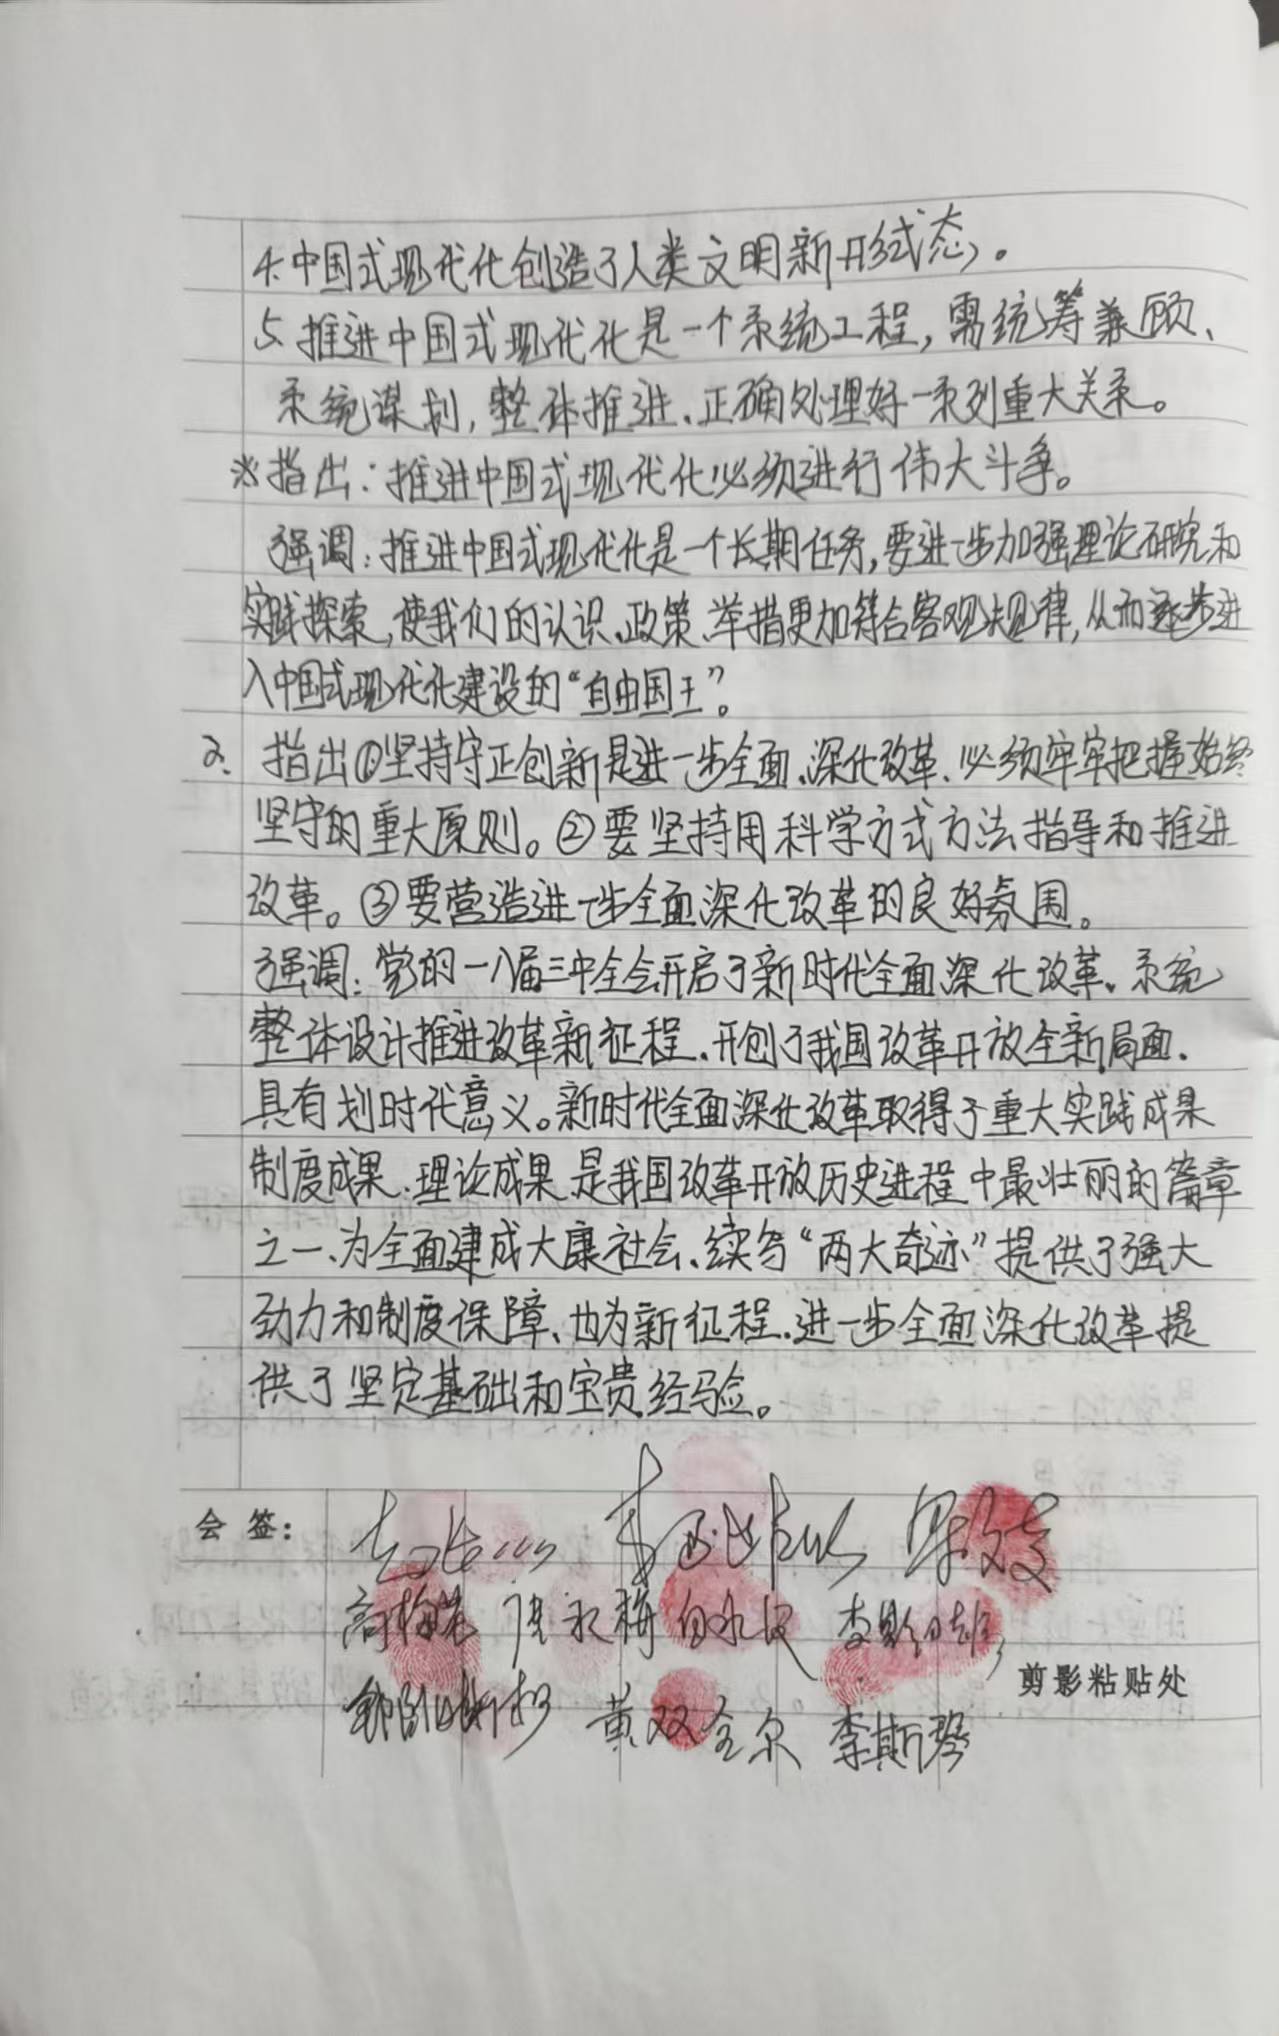 4.中国式现代化创造了人类文明新形式态。
5.推进中国式现代化是一个系统工程,需统筹兼顾、
系统谋划,整体推进、正确处理好一系列重大关系。
※指出:推进中国式现代化必须进行伟大斗争。
强调:推进中国式现代化是一个长期任务,要进一步加强理论研究和
实践探索,使我们的认识、政策、举措更加符合客观规律,从而逐步进
入中国式现代化建设的“自由国王”。
2. 指出①坚持守正创新是进一步全面、深化改革、必须牢牢把握始终
坚守的重大原则。②要坚持用科学方式方法指导和推进
改革。③要营造进一步全面深化改革的良好氛围。
强调:党的一八届三中全会开启了新时代全面深化改革、系统
整体设计推进改革新征程、开创了我国改革开放全新局面、
具有划时代意义。新时代全面深化改革取得了重大实践成果
制度成果、理论成果是我国改革开放历史进程中最壮丽的篇章
之一、为全面建成大康社会、续写“两大奇迹”提供了强大
动力和制度保障、也为新征程、进一步全面深化改革提
供了坚定基础和宝贵经验。
会签:
黄双全 李斯琴
剪影粘贴处